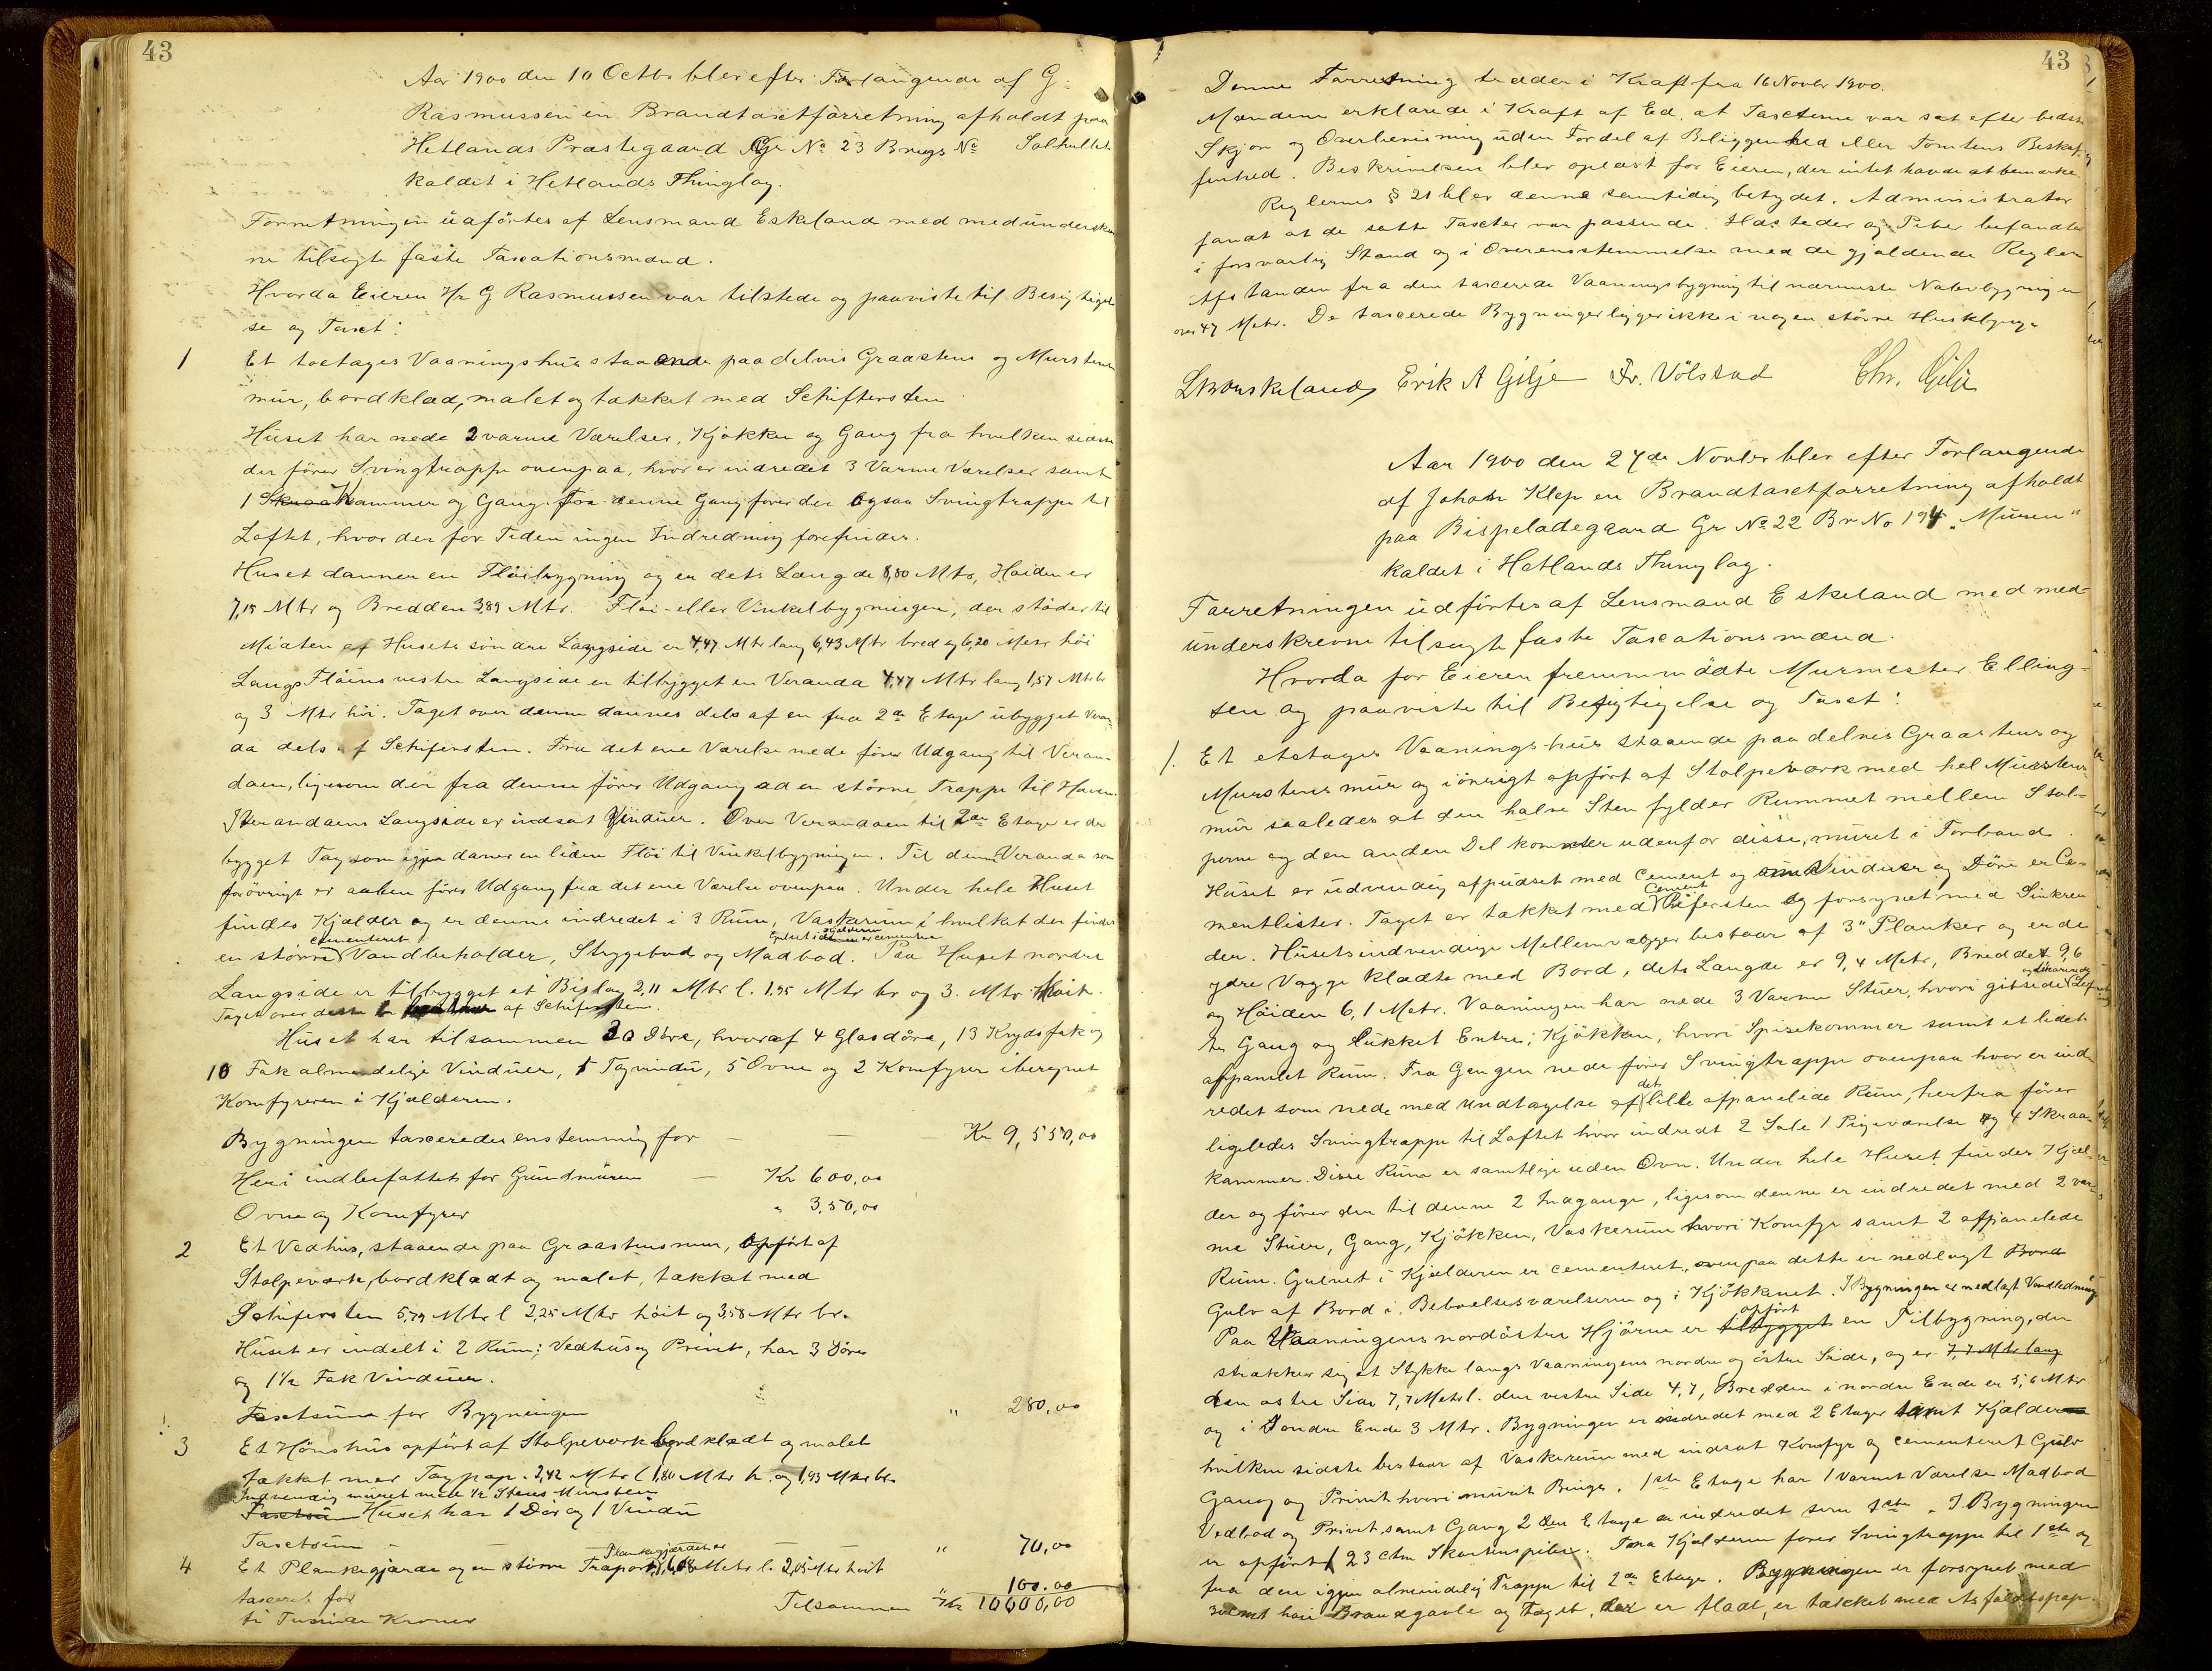 43
Aar 1900 den 10 Octbr blev efter Forlangende af G
Rasmussen en Brandtaxtforretning afholdt paa
Hetlands Præstegaard Gr No 23 Brugs No Solhullet
kaldet i Hetlands Thinglag.
Forretningen udførtes af Lensmand Eskeland med medunderskrev
ne tilsagte faste Taxationsmænd.
Hvorda Eieren Hr G Rasmussen var tilstede og paaviste til Besigtigel
se og Taxt:
1 Et toetages Vaaningshus staaende paa delvis Graastens og Murstens
mur, bordklæd, malet og tækket med Schiffersten
Huset har nede 2 varme Værelser, Kjøkken og Gang fra hvilken sidste
der fører Svingtrappe ovenpaa, hvor er indredet 3 Varme Værelser samt
1 Skraa Kammer og Gang. Fra denne Gang fører der ogsaa Svingtrappe til
Loftet, hvor der for Tiden ingen Indredning forefindes.
Huset danner en Fløibygning og er dets Længde 8,80 Mtr, Høiden er
7,15 Mtr og Bredden 3,89 Mtr. Fløi- eller Vinkelbygningen, der støder til
Midten af Husets søndre Langside er 4,47 Mtr lang 6,43 Mtr bred og 6,20 Metr høi
Langs Fløiens vestre Langside er tilbygget en Veranda 4,47 Mtr lang 1,57 Mtr br
og 3 Mtr høi. Taget over denne dannes dels af en fra 2de Etage udbygget Veran
da dels af Schifersten. Fra det ene Værelse nede fører Udgang til Veran-
daen, ligesom der fra denne fører Udgang ad en større Trappe til Haven.
I Verandaens Langside er indsat Vinduer. Over Verandaen til 2de Etage er der
bygget Tag som igjen danner en liden Fløi til Vinkelbygningen. Til denne Veranda som
forøvrigt er aaben fører Udgang fra det ene Værelse ovenpaa. Under hele Huset
findes Kjælder og er denne indredet i 3 Rum, Vaskerum i hvilket der findes
cementeret Gulvet i Kjælderen er cementeret
en større Vandbeholder, Strygebod og Madbod. Paa Huset nordre
Langside er tilbygget et Bislag 2,11 Mtr l. 1,95 Mtr br og 3. Mtr høit.
Taget over dette er af Schifersten.
Huset har tilsammen 20 Døre, hvoraf 4 Glasdøre, 13 Krydsfak og
10 Fak almindelige Vinduer, 5 Tagvindu, 5 Ovne og 2 Komfyrer iberegnet
Komfyren i Kjælderen.
Bygningen taxeredes enstemmig for — — Kr 9,550,00
Heri indbefattet for Grundmuren — Kr 600,00
Ovne og Komfyrer " 350,00
2 Et Vedhus, staaende paa Graastensmur, opført af
Stolpeværk, bordklædt og malet, tækket med
Schifersten 5,79 Mtr l 2,25 Mtr høit og 3,58 Mtr br.
Huset er indelt i 2 Rum; Vedhus og Privet, har 3 Døre
og 1½ Fak Vinduer.
Taxtsum for Bygningen " 280,00
3 Et Hønshus opført af Stolpeværk bordklædt og malet
tækket med Tagpap. 2,42 Mtr l 1,80 Mtr h. og 1,93 Mtr br.
Indvendig muret med ½ Stens Mursten
Taxtsum Huset har 1 Dør og 1 Vindu
Taxtsum — — — " 70,00
Plankegjærdet er
4 Et Plankegjærde og en større Traport, 1,68 Metr l. 2,05 Mtr høit
taxeret for 100.00
ti Tusinde Kroner Tilsammen Kr 10000,00
43
Denne Forretning træder i Kraft fra 16 Novbr 1900.
Mændene erklærede i Kraft af Ed, at Taxterne var sat efter bedste
Skjøn og Overbevisning uden Fordel af Beliggenhed eller Tomtens Beskaf-
fenhed. Beskrivelsen blev oplæst for Eieren, der intet havde at bemærke.
Reglernes § 21 blev denne samtidig betydet. Administrator
fandt at de satte Taxter var passende. Ildsteder og Piber befandtes
i forsvarlig Stand og i Overensstemmelse med de gjældende Regler
Afstanden fra den taxerede Vaaningsbygning til nærmeste Nabobygning er
over 47 Metr. De taxerede Bygninger ligger ikke i nogen større Husklynge
Eskeland, Erik A Gilje Fr. Vølstad Chr. Gilje
Aar 1900 den 27de Novbr blev efter Forlangende
af Johan Klep en Brandtaxtforretning afholdt
paa Bispeladegaard Gr No 22 Br No 194 „Muren"
kaldet i Hetlands Thinglag.
Forretningen udførtes af Lensmand Eskeland med med-
underskrevne tilsagte faste Taxationsmænd.
Hvorda for Eieren fremmødte Murmester Elling-
sen og paaviste til Besigtigelse og Taxt:
1. Et etetages Vaaningshus staaende paa delvis Graastens og
Murstensmur og iøvrigt opført af Stolpeværk med hel Murstens-
mur saaledes at den halve Sten fylder Rummet mellem Stol-
perne og den anden Del kommer udenfor disse, muret i Forband.
Huset er udvendig afpudset med Cement og om Vinduer og Døre er Ce-
mentlister. Taget er tækket med Cement Skifersten og forsynet med Sinkren
der. Husets indvendige Mellemvægger bestaar af 3" Planker og er de
ydre Vægge klædte med Bord, dets Længde er 9,4 Metr, Bredden 9,6
og Høiden 6,1 Metr. Vaaningen har nede 3 Varme Stuer, hvori gibsede
Gang og lukket Entre; Kjøkken, hvori Spisekammer samt et lidet
afpanelet Rum. Fra Gangen nede fører Svingtrappe ovenpaa hvor er ind
redet som nede med Undtagelse af det lille afpanelede Rum, herfra fører
ligeledes Svingtrappe til Loftet hvor indredt 2 Sale 1 Pigeværelse og 4 Skraa-
kammer. Disse Rum er samtlige uden Ovn. Under hele Huset findes Kjæl-
der og fører der til denne 2 Indgange, ligesom denne er indredet med 2 var-
me Stuer, Gang, Kjøkken, Vaskerum hvori Komfyr samt 2 afpanelede
Rum. Gulvet i Kjælderen er cementeret, ovenpaa dette er nedlagt Bord
Gulv af Bord i Beboelsesværelserne og i Kjøkkenet. I Bygningen er nedlagt Vandledning
Paa Vaaningens nordøstre Hjørne er tilbygget opført en Tilbygning, der
strækker sig et Stykke langs Vaaningens nordre og østre Side, og er 7,7 Mtr lang
den østre Side 7,7 Metr l. den vestre Side 4,7, Bredden i nordre Ende er 5,6 Mtr
og i Søndre Ende 3 Mtr. Bygningen er indredet med 2 Etager samt Kjælder
hvilken sidste bestaar af Vaskerum med indsat Komfyr og cementeret Gulv
Gang og Privet hvori muret Binge. 1ste Etage har 1 Varmt Værelse Madbod
Vedbod og Privet, samt Gang 2den Etage er indredet som 1ste. I Bygningen
er opført 23 Ctm Skorstenspibe. Fra Kjælderen fører Svingtrappe til 1ste og
fra den igjen almindelig Trappe til 2de Etage. Bygningen er forsynet med
Brandgavle og Taget, der er fladt, er tækket med Asfaltpap.